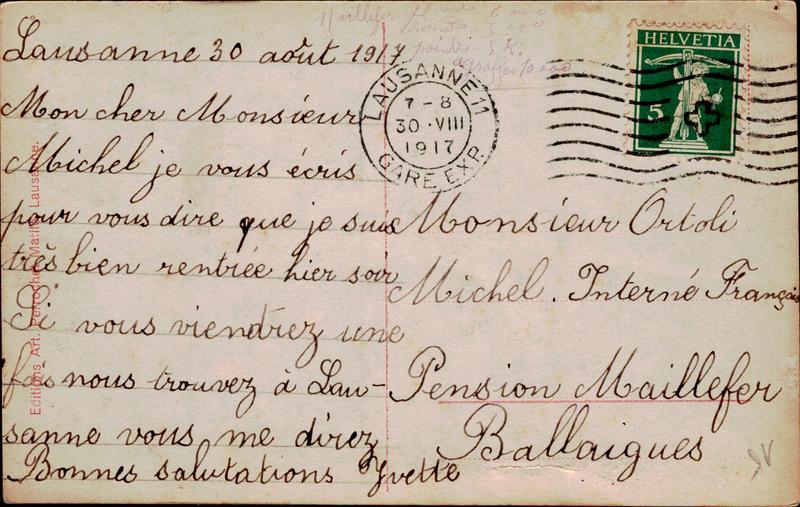 Lausanne 30 août 1917
Mon cher Monsieur
Michel je vous écris
pour vous dire que je suis
très bien rentrée hier soir
Si vous viendrez une
fois nous trouvez à Lau-
sanne vous me direz
Bonnes salutations Yvette
Monsieur Ortoli
Michel. Interné Français
Pension Maillefer
Ballaigues
LAUSANNE 11
7-8
30·VIII
1917
GARE EXP.
HELVETIA
5
Editions Art. Perrochet-Matile, Lausanne.
Maillefer